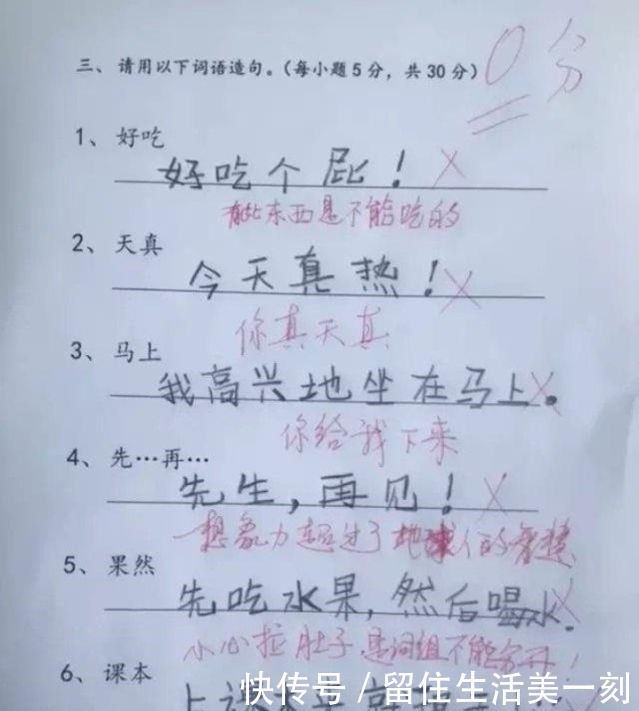 三、请用以下词语造句。(每小题5分，共30分)
0分
1、好吃
好吃个屁！
有些东西是不能吃的
2、天真
今天真热！
你真天真
3、马上
我高兴地坐在马上。
你给我下来
4、先…再…
先生，再见！
想象力超过了地球人的智慧
5、果然
先吃水果，然后喝水.
小心拉肚子是词组不能分开！
6、课本
上
快传号/留住生活美一刻